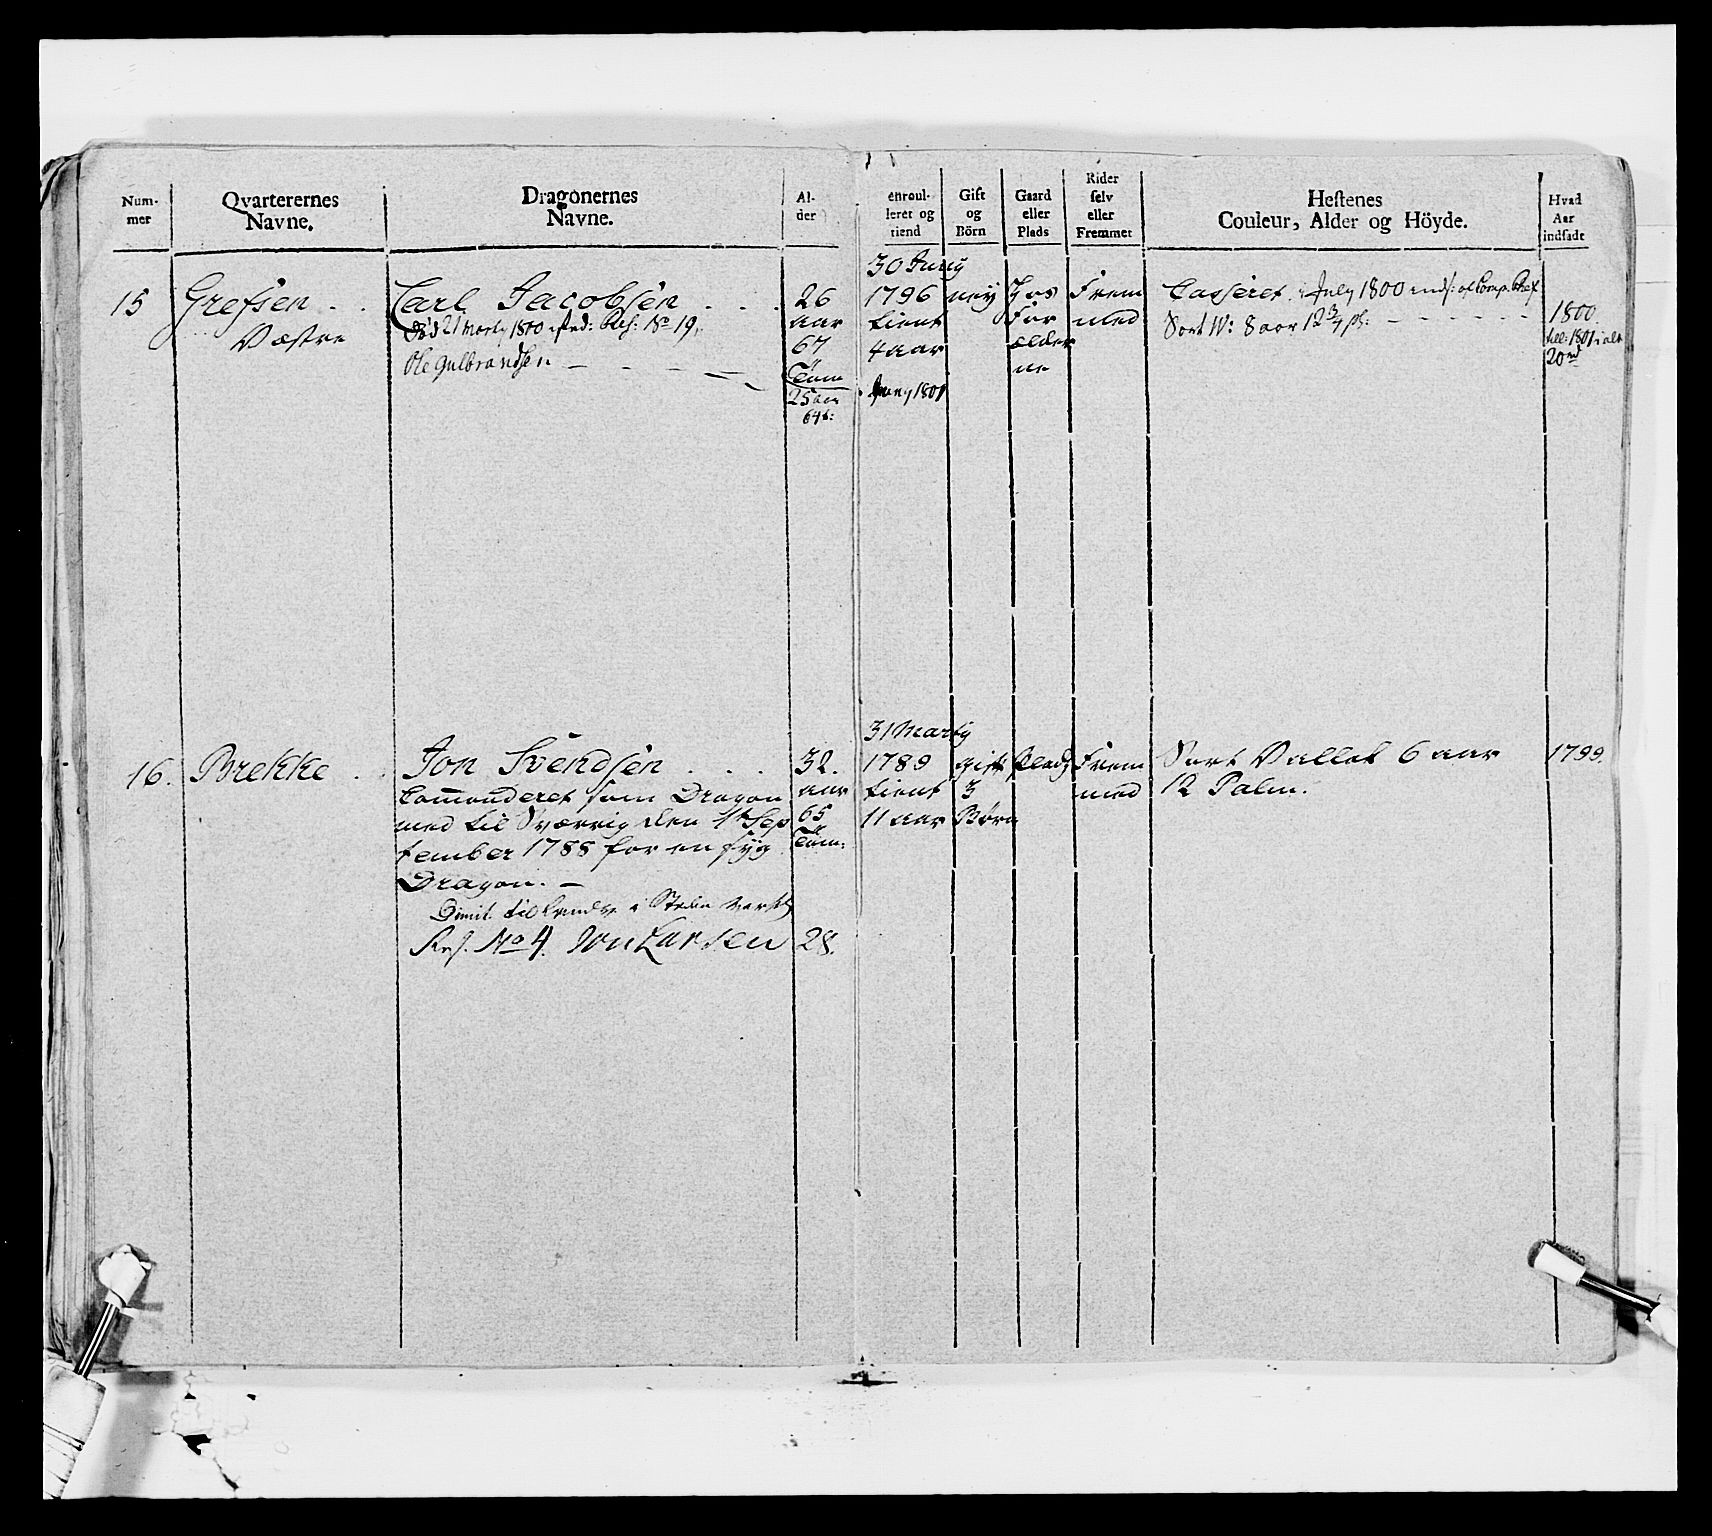 Num-
mer
Qvarterernes
Navne.
Dragonernes
Navne.
Al-
der
enroul-
leret og
tiend
Gift
og
Börn
Gaard
eller
Plads
Rider
selv
eller
Fremmet
Hestenes
Couleur, Alder og Höyde.
Hvad
Aar
indsadt
15
Grefsen
Væstre
Carl Jacobsen
Död 21 Marty 1800 Res: No 19,
Ole Gulbrandsen
26
aar
67
Tom
25 aar
64 t:
30 Juny
1796
tient
4 aar
Juny 1801
ney
Hos
For
ælder
ne
Frem
med
Casseret July 1800 inds: af Comp. Chef
Sort W: 8 aar 12 3/4 pl:
1800
1801
20
16.
Brekke
Jon Svendsen
Comanderet som Dragon
med til Sværrig den 1te Sep
tember 1788 for en syg
Dragon.
Dimit. til
Res. No 4. Jon Larsen
32.
aar
65
Tom:
28.
31 Marty
1789
tient
11 aar
gift
3
Börn
Plads
Frem
med
Sort Vallak 6 aar
12 Palm.
1799.